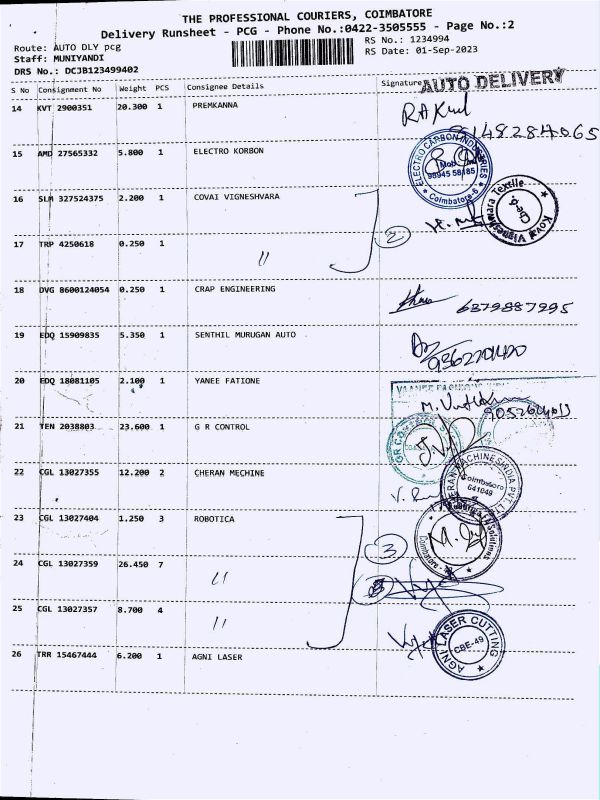 THE PROFESSIONAL COURIERS, COIMBATORE
Delivery Runsheet - PCG - Phone No.:0422-3505555 - Page No.:2
Route: AUTO DLY pcg
RS No.: 1234994
Staff: MUNIYANDI
RS Date: 01-Sep-2023
DRS No.: DCJB123499402
AUTO DELIVERY
S No Consignment No Weight PCS Consignee Details Signature
14 KVT 2900351 20.300 1 PREMKANNA
15 AMD 27565332 5.800 1 ELECTRO KORBON
ELECTRO CARBON INDUSTRIES
Mob
98945 58185
Coimbatore-6
16 SLM 327524375 2.200 1 COVAI VIGNESHVARA
Kovai Vigneshwara Textile
Cbe-6
2
17 TRP 4250618 0.250 1 "
18 DVG 8600124054 0.250 1 CRAP ENGINEERING
6379887995
19 EDQ 15909835 5.350 1 SENTHIL MURUGAN AUTO
20 EDQ 18081105 2.100 1 YANEE FATIONE
21 TEN 2038803 23.600 1 G R CONTROL
GR CONTROL
22 CGL 13027355 12.200 2 CHERAN MECHINE
CHERAN MACHINES INDIA PVT. LTD
Coimbatore
641049
23 CGL 13027404 1.250 3 ROBOTICA
Solutions
Coimbatore
3
24 CGL 13027359 26.450 7 "
25 CGL 13027357 8.700 4 "
26 TRR 15467444 6.200 1 AGNI LASER
AGNI LASER CUTTING
CBE-49